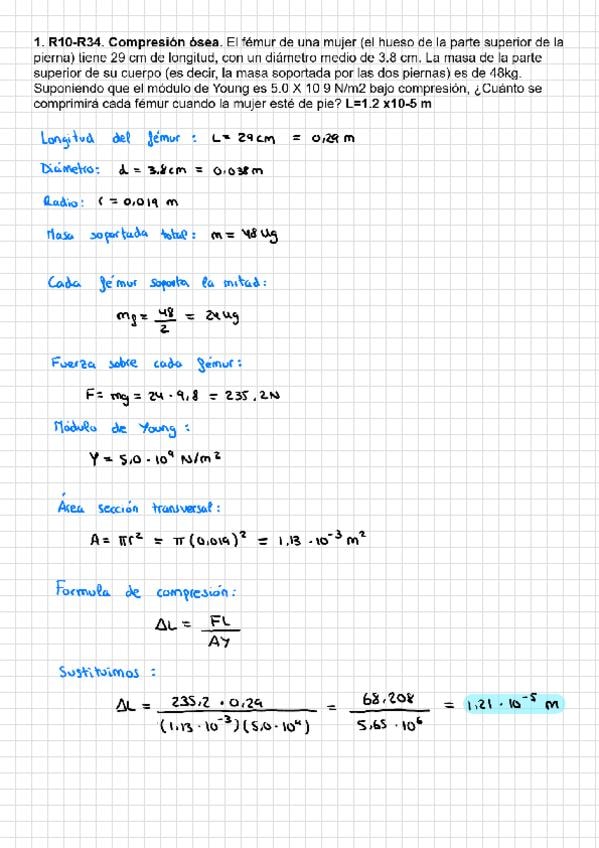 1. R10-R34. Compresión ósea. El fémur de una mujer (el hueso de la parte superior de la
pierna) tiene 29 cm de longitud, con un diámetro medio de 3.8 cm. La masa de la parte
superior de su cuerpo (es decir, la masa soportada por las dos piernas) es de 48kg.
Suponiendo que el módulo de Young es 5.0 X 10 9 N/m2 bajo compresión, ¿Cuánto se
comprimirá cada fémur cuando la mujer esté de pie? L=1.2 x10-5 m
Longitud del fémur : L = 29 cm = 0,29 m
Diámetro: d = 3.8 cm = 0.038 m
Radio: r = 0,019 m
Masa soportada total: m = 48 kg
Cada fémur soporta la mitad:
mg = 48/2 = 24 kg
Fuerza sobre cada fémur:
F = mg = 24 · 9,8 = 235,2 N
Módulo de Young :
Y = 5,0 · 10⁹ N/m²
Área sección transversal:
A = πr² = π(0,019)² = 1,13 · 10⁻³ m²
Formula de compresión:
ΔL = FL/AY
Sustituimos :
ΔL = 235,2 · 0,29/(1,13 · 10⁻³)(5,0 · 10⁹) = 68,208/5,65 · 10⁶ = 1,21 · 10⁻⁵ m